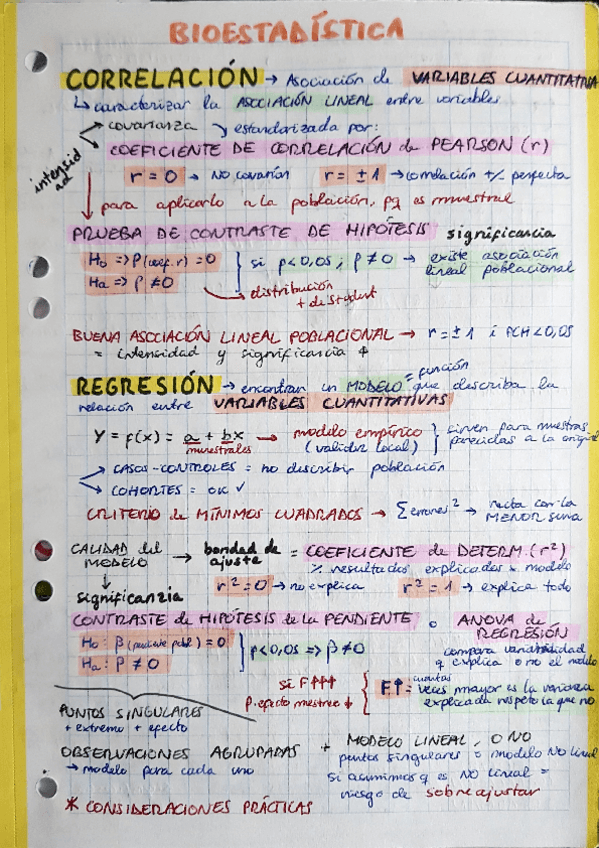 BIOESTADÍSTICA
CORRELACIÓN → Asociación de VARIABLES CUANTITATIVA
↳ caracterizar la ASOCIACIÓN LINEAL entre variables
→ covarianza ↘ estandarizada por:
intensidad
→ COEFICIENTE DE CORRELACIÓN de PEARSON (r)
r = 0 → No covarían r = ±1 → correlación +/- perfecta
para aplicarlo a la población, pq es muestral
PRUEBA DE CONTRASTE DE HIPÓTESIS significancia
H₀ => ρ(coef. r) = 0 } si p<0,05 ; ρ ≠ 0 → existe asociación
Ha => ρ ≠ 0 lineal poblacional
→ distribución
t de Student
BUENA ASOCIACIÓN LINEAL POBLACIONAL → r = ±1 i PCH < 0,05
= intensidad y significancia ↑
REGRESIÓN → encontrar un MODELO = función que describa la
relación entre VARIABLES CUANTITATIVAS
Y = f(x) = a + bx → modelo empírico } sirven para muestras
muestrales (validez local) parecidas a la original
→ CASOS-CONTROLES = no describir población
→ COHORTES = OK ✓
CRITERIO de MÍNIMOS CUADRADOS → Σ errores² → recta con la
MENOR suma
CALIDAD del MODELO → bondad de ajuste = COEFICIENTE de DETERM. (r²)
% resultados explicados x modelo
↓ r² = 0 → no explica r² = 1 → explica todo
significanzia
CONTRASTE de HIPÓTESIS de la PENDIENTE o ANOVA de
REGRESIÓN
H₀ : β (pendiente pobl.) = 0 } p<0,05 => β ≠ 0 compara variabilidad
Ha : β ≠ 0 q explica o no el modelo
si F↑↑↑ { F↑ = cuantas veces mayor es la varianza
p. efecto muestreo ↓ explicada respeto la que no
PUNTOS SINGULARES
+ extremo + efecto
OBSERVACIONES AGRUPADAS + MODELO LINEAL, O NO
→ modelo para cada uno puntos singulares o modelo NO lineal
si asumimos q es NO lineal =
riesgo de sobreajustar
* CONSIDERACIONES PRÁCTICAS